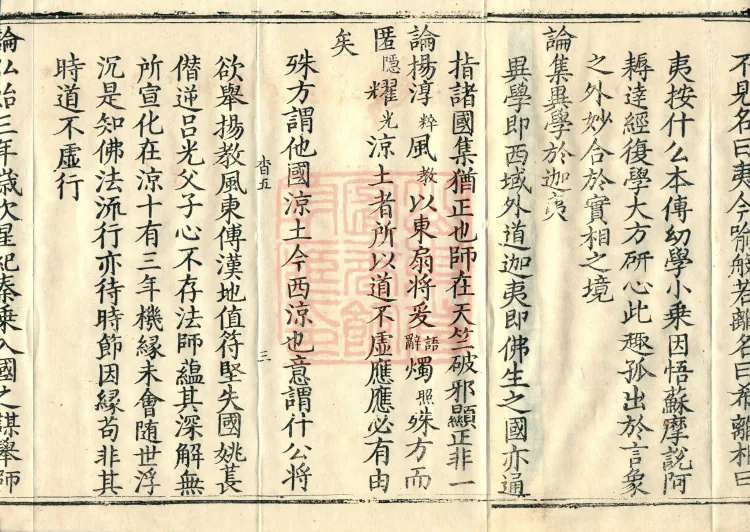 不見名曰夷今喻般若離名曰希離相曰
夷按什么本傳幼學小乗因悟蘇摩說阿
耨達經復學大方研心此趣孤出於言象
之外妙合於實相之境
論集異學於迦夷
異學即西域外道迦夷即佛生之國亦通
指諸國集猶正也師在天竺破邪顯正非一
論揚淳粹風教以東扇將爰語辭燭照殊方而
匿隱耀光涼土者所以道不虛應應必有由
矣
殊方謂他國涼土今西涼也意謂什公將
沓五 三
欲舉揚教風東傳漢地值符堅失國姚萇
僣逆呂光父子心不存法師蘊其深解無
所宣化在涼十有三年機縁未會随世浮
沉是知佛法流行亦待時節因縁苟非其
時道不虛行
論弘始三年歲次星紀秦乗入國之謀舉師